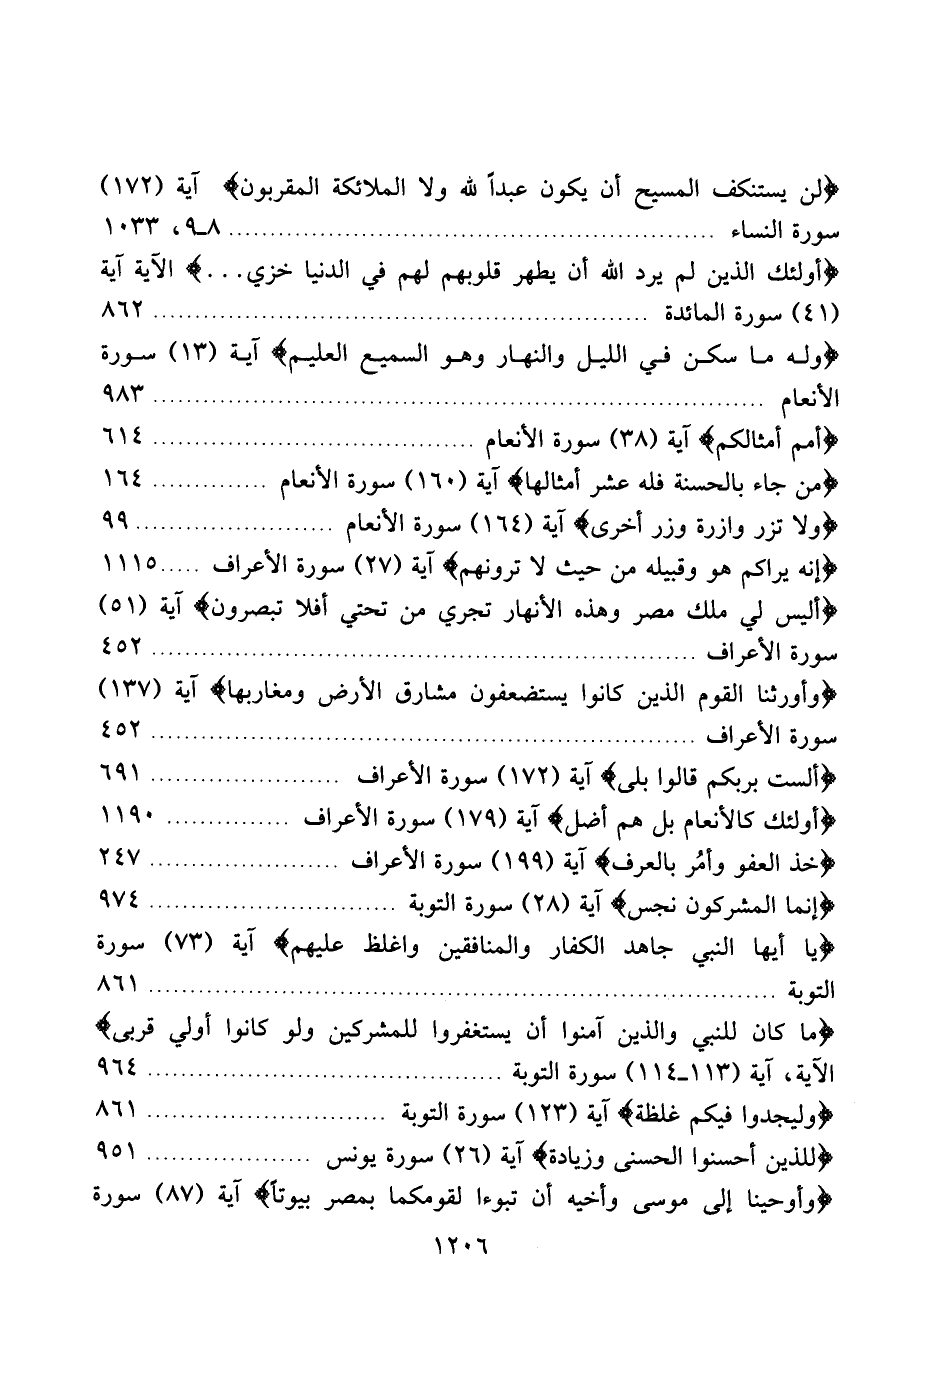 ﴿لن يستنكف المسيح أن يكون عبداً لله ولا الملائكة المقربون﴾ آية (١٧٢)
سورة النساء ........................................................ ٨ـ٩، ١٠٣٣
﴿أولئك الذين لم يرد الله أن يطهر قلوبهم لهم في الدنيا خزي...﴾ الآية آية
(٤١) سورة المائدة ........................................................ ٨٦٢
﴿وله ما سكن في الليل والنهار وهو السميع العليم﴾ آية (١٣) سورة
الأنعام ........................................................ ٩٨٣
﴿أمم أمثالكم﴾ آية (٣٨) سورة الأنعام ...................................... ٦١٤
﴿من جاء بالحسنة فله عشر أمثالها﴾ آية (١٦٠) سورة الأنعام .............. ١٦٤
﴿ولا تزر وازرة وزر أخرى﴾ آية (١٦٤) سورة الأنعام ........................ ٩٩
﴿إنه يراكم هو وقبيله من حيث لا ترونهم﴾ آية (٢٧) سورة الأعراف ..... ١١١٥
﴿أليس لي ملك مصر وهذه الأنهار تجري من تحتي أفلا تبصرون﴾ آية (٥١)
سورة الأعراف ........................................................ ٤٥٢
﴿وأورثنا القوم الذين كانوا يستضعفون مشارق الأرض ومغاربها﴾ آية (١٣٧)
سورة الأعراف ........................................................ ٤٥٢
﴿ألست بربكم قالوا بلى﴾ آية (١٧٢) سورة الأعراف ....................... ٦٩١
﴿أولئك كالأنعام بل هم أضل﴾ آية (١٧٩) سورة الأعراف ............... ١١٩٠
﴿خذ العفو وأمُر بالعرف﴾ آية (١٩٩) سورة الأعراف ....................... ٢٤٧
﴿إنما المشركون نجس﴾ آية (٢٨) سورة التوبة .............................. ٩٧٤
﴿يا أيها النبي جاهد الكفار والمنافقين واغلظ عليهم﴾ آية (٧٣) سورة
التوبة ........................................................ ٨٦١
﴿ما كان للنبي والذين آمنوا أن يستغفروا للمشركين ولو كانوا أولي قربى﴾
الآية، آية (١١٣ـ١١٤) سورة التوبة .......................................... ٩٦٤
﴿وليجدوا فيكم غلظة﴾ آية (١٢٣) سورة التوبة ............................. ٨٦١
﴿للذين أحسنوا الحسنى وزيادة﴾ آية (٢٦) سورة يونس .................... ٩٥١
﴿وأوحينا إلى موسى وأخيه أن تبوءا لقومكما بمصر بيوتاً﴾ آية (٨٧) سورة
١٢٠٦